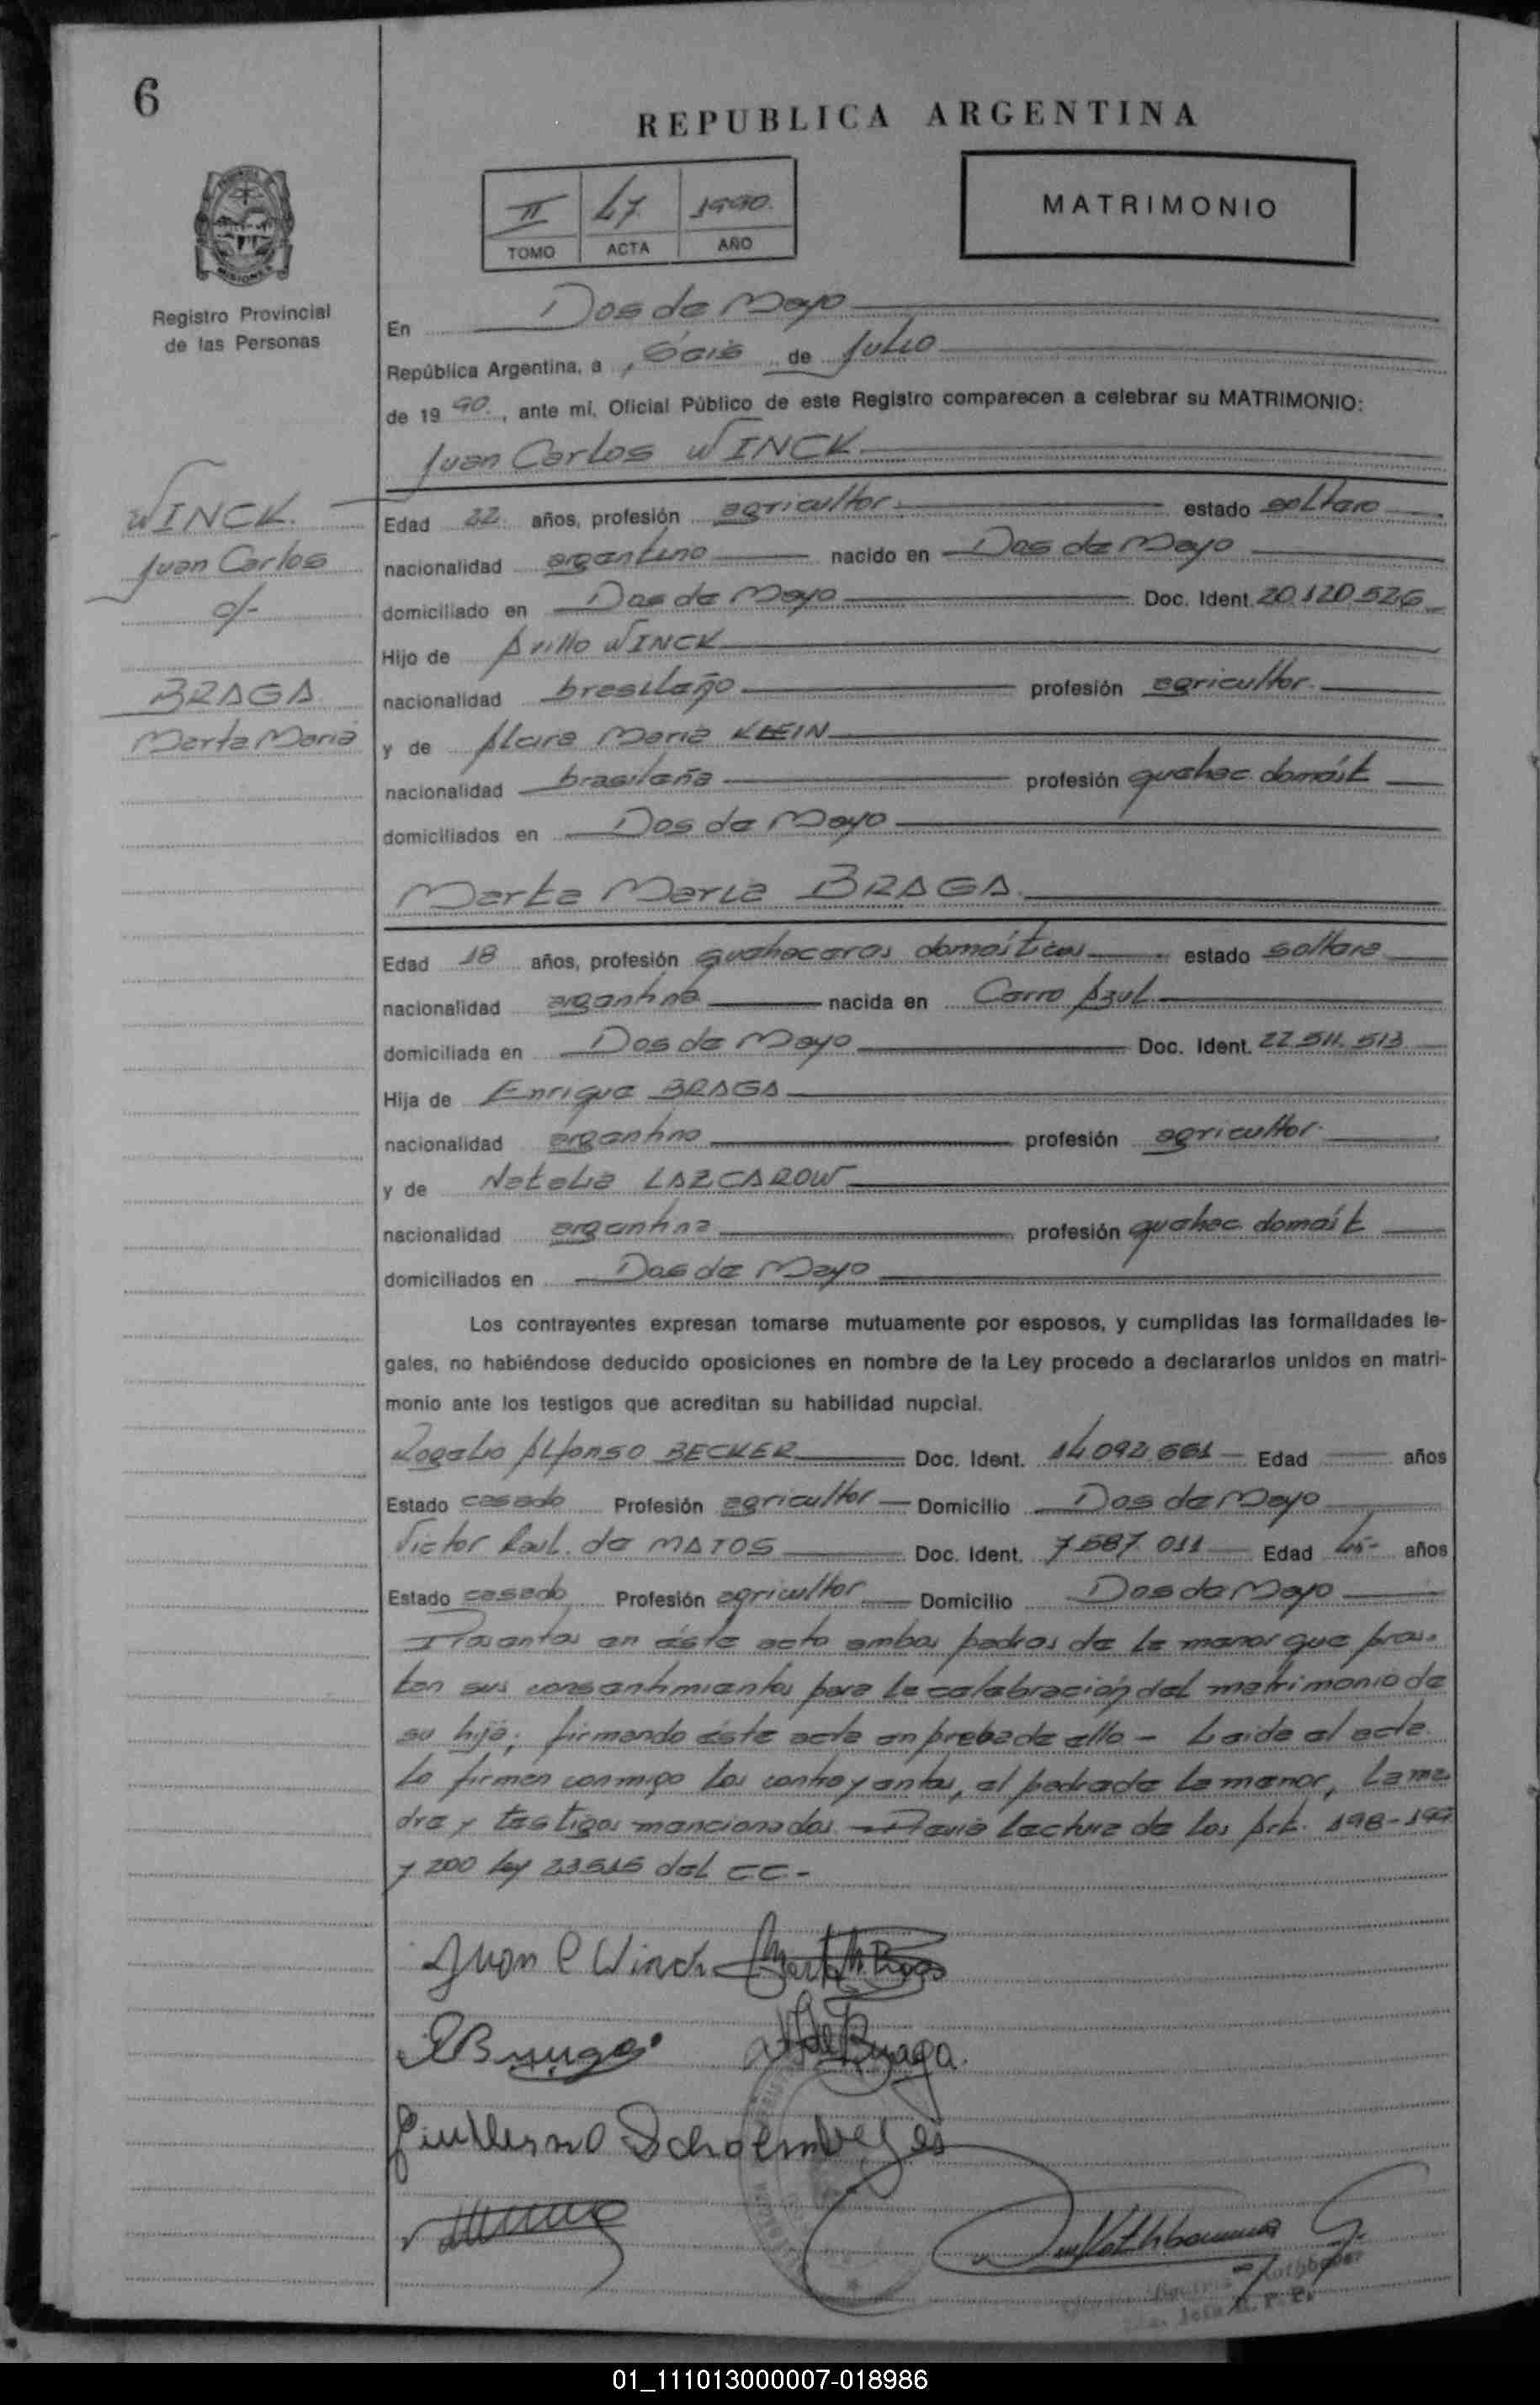 6
REPUBLICA ARGENTINA
II 47 1990.
TOMO ACTA AÑO
MATRIMONIO
Registro Provincial
de las Personas
En Dos de Mayo
República Argentina, a Seis de Julio
de 19 90., ante mí, Oficial Público de este Registro comparecen a celebrar su MATRIMONIO:
Juan Carlos WINCK
WINCK.
Juan Carlos
c/-
BRAGA
Marta Maria
Edad 22 años, profesión agricultor estado soltero
nacionalidad argentino nacido en Dos de Mayo
domiciliado en Dos de Mayo Doc. Ident. 20.120.526
Hijo de Arillo WINCK
nacionalidad brasileño profesión agricultor.
y de Alcira Maria KLEIN
nacionalidad brasileña profesión quehac. domést
domiciliados en Dos de Mayo
Marta Maria BRAGA
Edad 18 años, profesión quehaceres domésticos estado soltera
nacionalidad argentina nacida en Cerro Azul
domiciliada en Dos de Mayo Doc. Ident. 22.511.513
Hija de Enrique BRAGA
nacionalidad argentino profesión agricultor.
y de Natalia LAZCAROW
nacionalidad argentina profesión quehac. domést
domiciliados en Dos de Mayo
Los contrayentes expresan tomarse mutuamente por esposos, y cumplidas las formalidades le-
gales, no habiéndose deducido oposiciones en nombre de la Ley procedo a declararlos unidos en matri-
monio ante los testigos que acreditan su habilidad nupcial.
Rogelio Alfonso BECKER Doc. Ident. 14.092.661 Edad años
Estado casado Profesión agricultor Domicilio Dos de Mayo
Victor Raul. de MATOS Doc. Ident. 7.587.011 Edad 45- años
Estado casado Profesión agricultor Domicilio Dos de Mayo
Presentes en éste acto ambos padres de la menor que pres-
tan sus consentimientos para la celebración del matrimonio de
su hija; firmando éste acta en prueba de ello - Leida el acta
la firman conmigo los contrayentes, el padre de la menor, la ma
dre y testigos mencionados. Previa lectura de los Art. 198-199
y 200 Ley 23515 del CC.-
Juan C Winck Marta M Braga
E Braga. N de Braga.
Guillermo
01_111013000007-018986